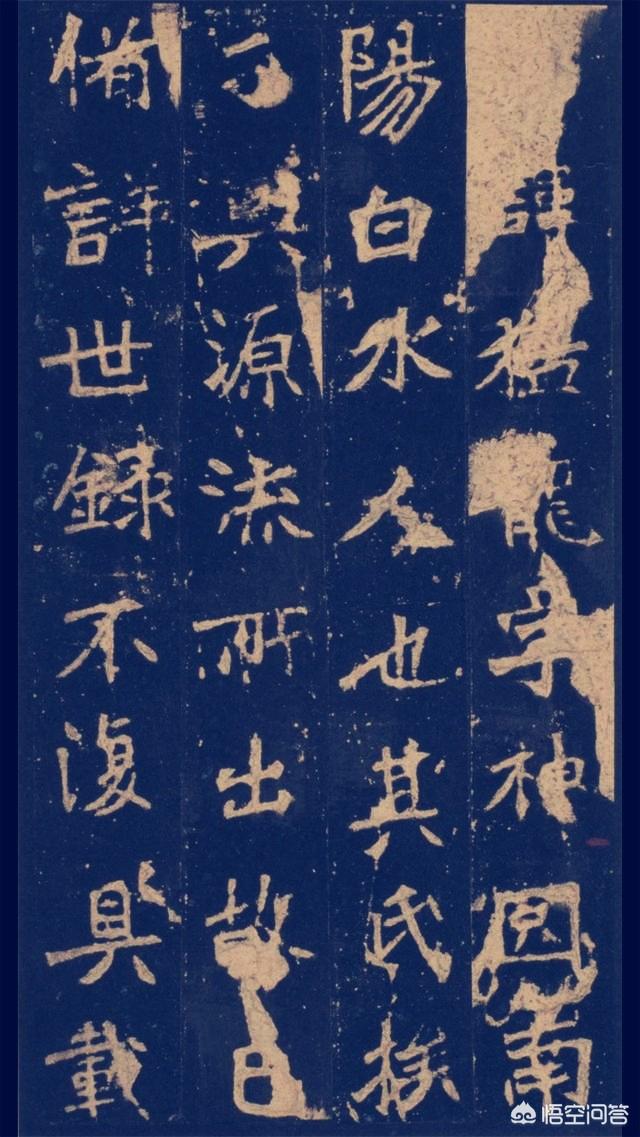 諱猛龍字神㘣南
陽白水人也其氏族
源流所出故
俻詳世録不復具載
悟空问答